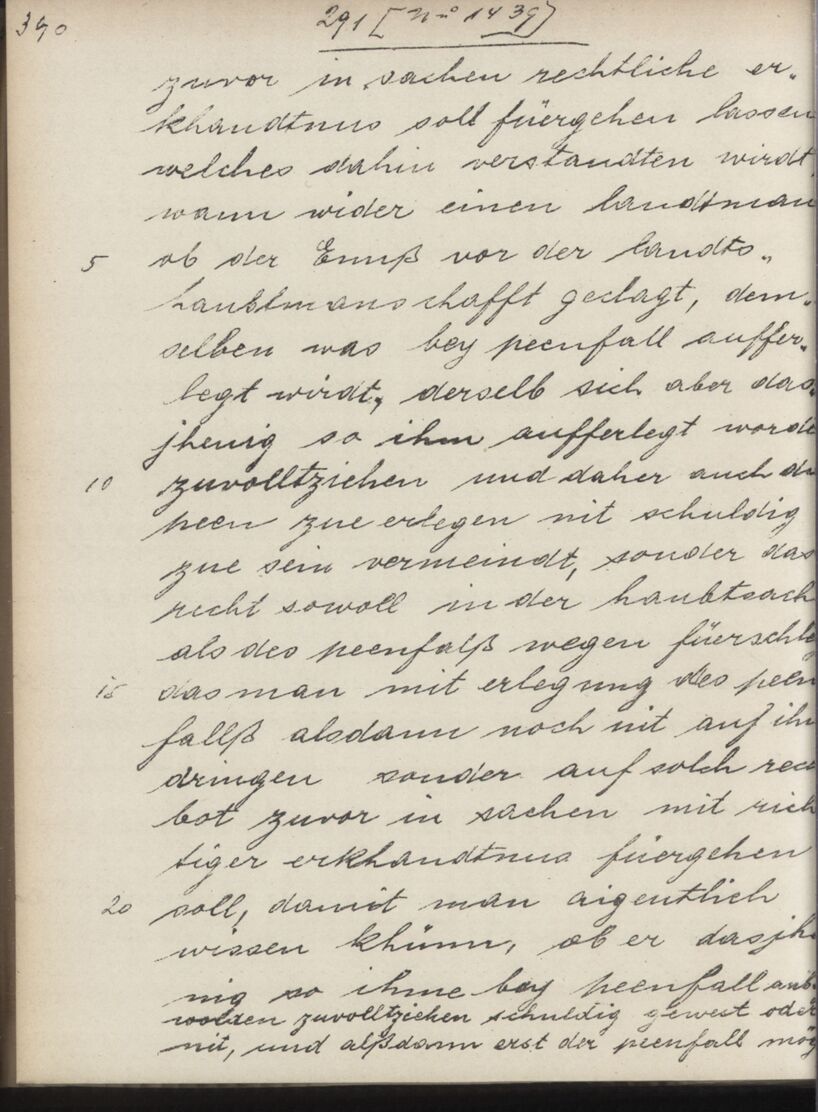 390
291 [No 1439]
zuvor in sachen rechtliche er„
khandtnus soll füergehen lassen
welches dahin verstandten wirdt,
wann wider einen landtman
5 ob der Ennß vor der landts„
haubtmanschafft geclagt, dem„
selben was bey peenfall auffer„
legt wirdt, derselb sich aber das„
jhenig so ihm aufferlegt worde
10 zuvolltziehen und daher auch di
peen zue erlegen nit schuldig
zue sein vermeindt, sonder das
recht sowoll in der haubtsach
als des peenfalß wegen füerschle
15 das man mit erlegung des peen
fallß alsdann noch nit auf ihn
dringen sonder auf solch rec
bot zuvor in sachen mit rich
tiger erkhandtnus füergehen
20 soll, damit man aigentlich
wissen khünn, ob er dasjhe
nig so ihme bey peenfall aub
worden zuvolltziehen schuldig gewest oder
nit, und alßdann erst der peenfall mög